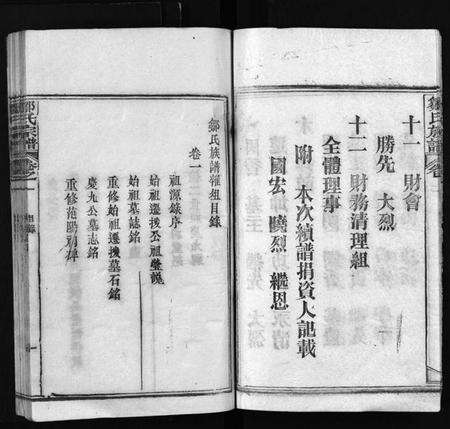 鄒氏族譜 卷
十一 財會
勝先 大烈
十二 財務清理組
全體理事
附 本次續譜捐資人記載
國宏 曉烈 繼恩
鄒氏族譜 目錄
卷一
祖源錄序
始祖遷揆公祖瑩說
始祖墓誌銘
重修始祖遷揆墓石銘
慶九公墓志銘
重修范陽祠碑
鄒氏族譜